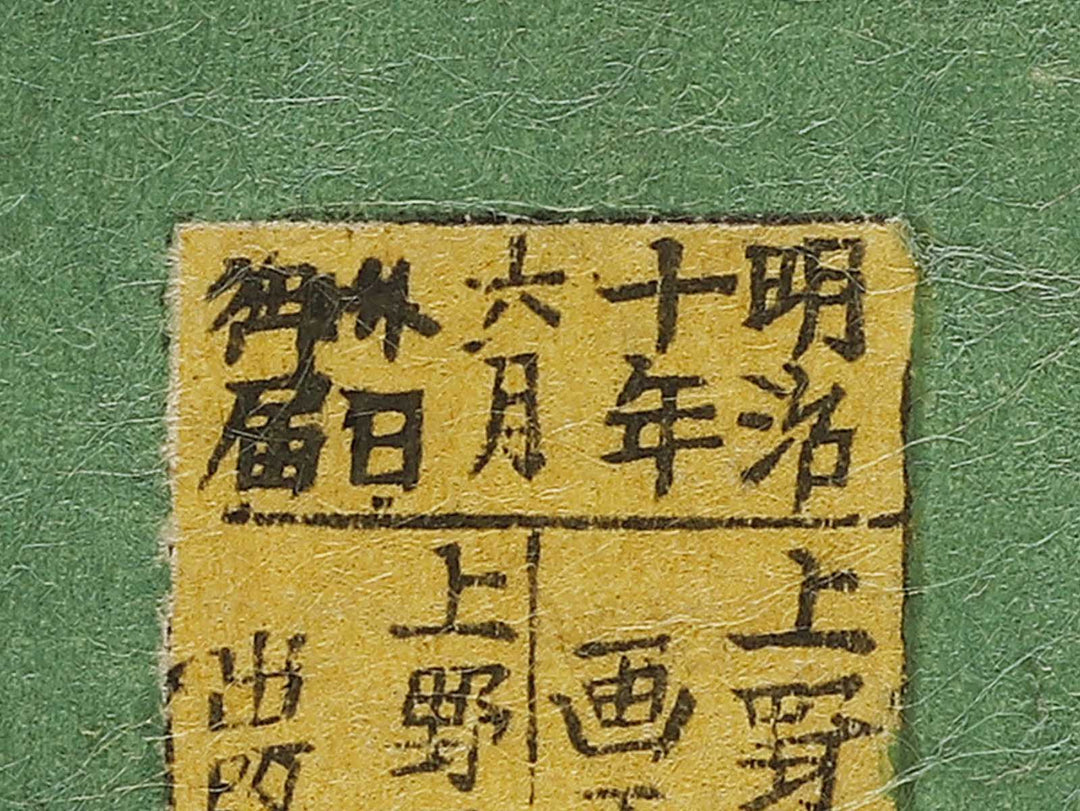 明治
十年
六月
日
御届
上野
画
上野
出